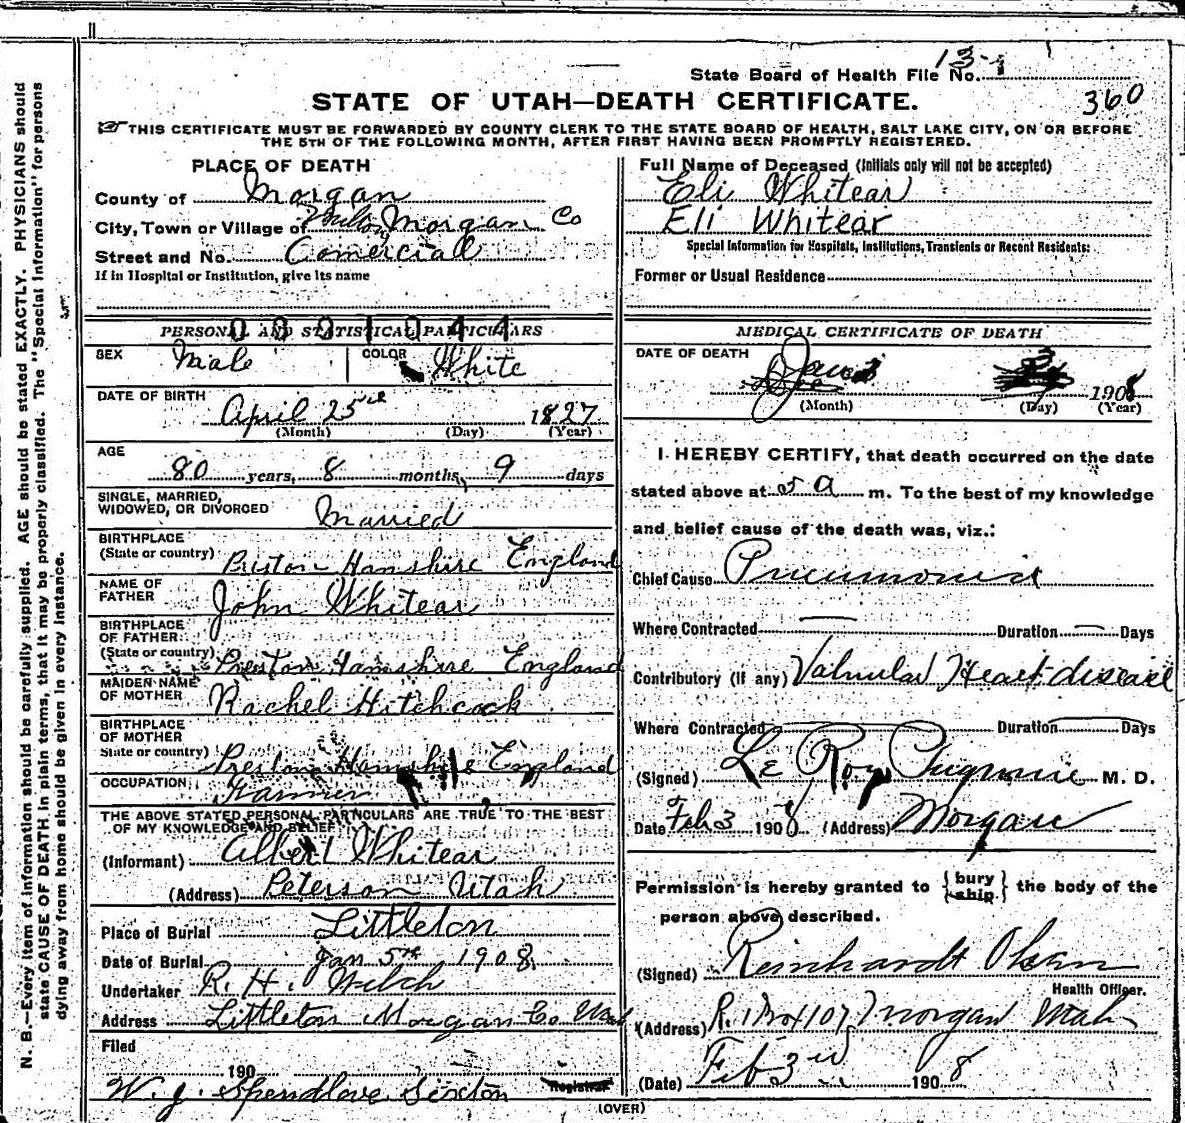 State Board of Health File No. 13-1
STATE OF UTAH—DEATH CERTIFICATE.
360
THIS CERTIFICATE MUST BE FORWARDED BY COUNTY CLERK TO THE STATE BOARD OF HEALTH, SALT LAKE CITY, ON OR BEFORE
THE 5TH OF THE FOLLOWING MONTH, AFTER FIRST HAVING BEEN PROMPTLY REGISTERED.
N. B.—Every item of information should be carefully supplied. AGE should be stated EXACTLY. PHYSICIANS should
state CAUSE OF DEATH in plain terms, that it may be properly classified. The "Special Information" for persons
dying away from home should be given in every instance.
PLACE OF DEATH
County of Morgan
City, Town or Village of Morgan Co
Street and No. Comercial
If in Hospital or Institution, give its name
PERSONAL AND STATISTICAL PARTICULARS
0001044
SEX Male COLOR White
DATE OF BIRTH April 25 1827
(Month) (Day) (Year)
AGE
80 years, 8 months, 9 days
SINGLE, MARRIED,
WIDOWED, OR DIVORCED Married
BIRTHPLACE
(State or country) Preston Hamshire England
NAME OF
FATHER John Whitear
BIRTHPLACE
OF FATHER
(State or country) Preston Hamshire England
MAIDEN NAME
OF MOTHER Rachel Hitchcock
BIRTHPLACE
OF MOTHER
State or country) Preston Hamshire England
OCCUPATION Farmer
THE ABOVE STATED PERSONAL PARTICULARS ARE TRUE TO THE BEST
OF MY KNOWLEDGE AND BELIEF
(Informant) Albert Whitear
(Address) Peterson Utah
Place of Burial Littleton
Date of Burial Jan 5th 1908
Undertaker R. H. Welch
Address Littleton Morgan Co Utah
Filed
190
W. J. Spendlove Sexton Registrar
Full Name of Deceased (Initials only will not be accepted)
Eli Whitear
Eli Whitear
Special Information for Hospitals, Institutions, Transients or Recent Residents:
Former or Usual Residence
MEDICAL CERTIFICATE OF DEATH
DATE OF DEATH Jan 3 1908
(Month) (Day) (Year)
I HEREBY CERTIFY, that death occurred on the date
stated above at 5 a m. To the best of my knowledge
and belief cause of the death was, viz.:
Chief Cause Pneumonia
Where Contracted — Duration — Days
Contributory (if any) Valvular Heart disease
Where Contracted Duration Days
(Signed) Le Roy Pugmire M. D.
Date Feb 3 1908 (Address) Morgan
Permission is hereby granted to {bury ship} the body of the
person above described.
(Signed) Reinhardt Olsen
Health Officer.
(Address) R. 1 Box 107 Morgan Utah
(Date) Feb 3rd 1908
(OVER)